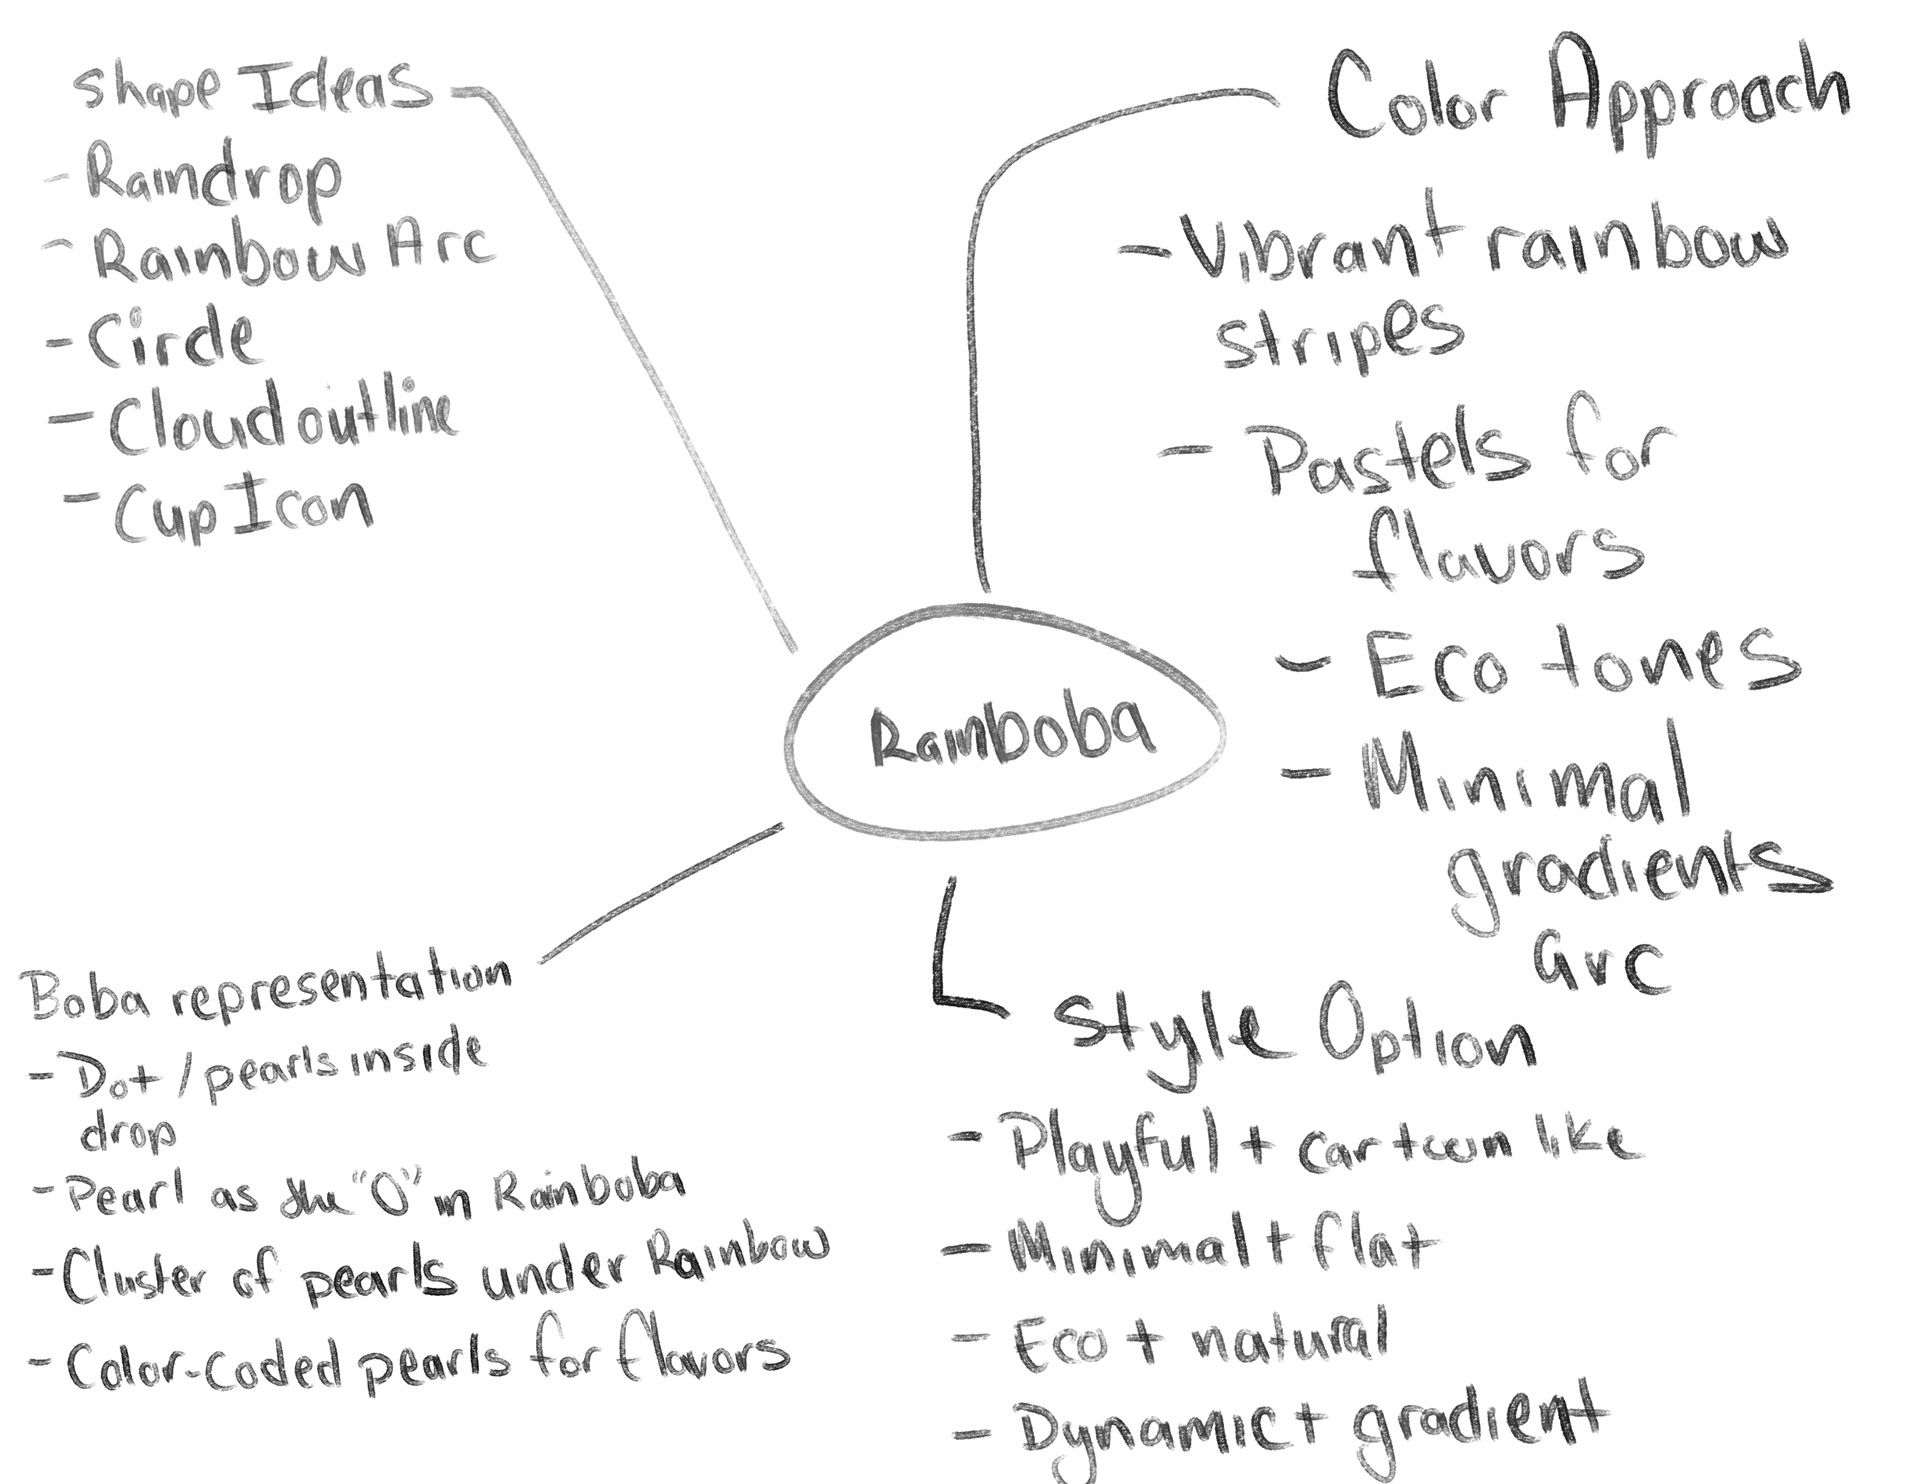 Shape Ideas
- Raindrop
- Rainbow Arc
- Circle
- Cloud outline
- Cup Icon
Color Approach
- Vibrant rainbow
stripes
- Pastels for
flavors
- Eco tones
- Minimal
gradients
arc
Rainboba
Boba representation
- Dot / pearls inside
drop
- Pearl as the "O" in Rainboba
- Cluster of pearls under Rainbow
- Color-coded pearls for flavors
Style Option
- Playful + cartoon like
- Minimal + flat
- Eco + natural
- Dynamic + gradient